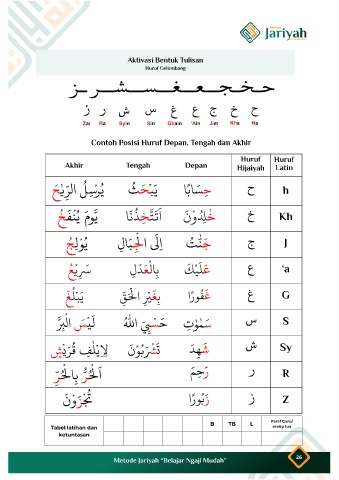 Jariyah
Aktivasi Bentuk Tulisan
Huruf Gelombang
حـخـجـعـغـسـشـرـز
ح خ ج ع غ س ش ر ز
Zai Ra Syin Sin Ghain 'Ain Jim Kho Ha
Contoh Posisi Huruf Depan, Tengah dan Akhir
Akhir Tengah Depan Huruf Hijaiyah Huruf Latin
يُرْسِلُ الرِّيٰحَ يَبْحَثُ حِسَابًا ح h
يَّوْمَ يُنْفَخُ تَتَّخِذُنَا خٰلِدُوْنَ خ Kh
يُوْلِجُ اِلَى الْجِبَالِ جَنّٰتٌ ج J
سَرِيْعُ بِالْعَدْلِ عَلَيْكَ ع 'a
يَبْلُغَ بِغَيْرِ الْحَقِّ غَفُوْرًا غ G
لَيْسَ الْبِرَّ حَسْبِيَ اللّٰهُ سَمٰوٰتِ س S
لِاِيْلٰفِ قُرَيْشٍ تَشْرَبُوْنَ شَهِدَ ش Sy
اَلْحُرُّ بِالْحُرِّ رَحِمَ ر R
تُجْزَوْنَ زَبُوْرًا ز Z
Tabel latihan dan ketuntasan B TB L Paraf Guru/ orang tua
Metode Jariyah "Belajar Ngaji Mudah" 26